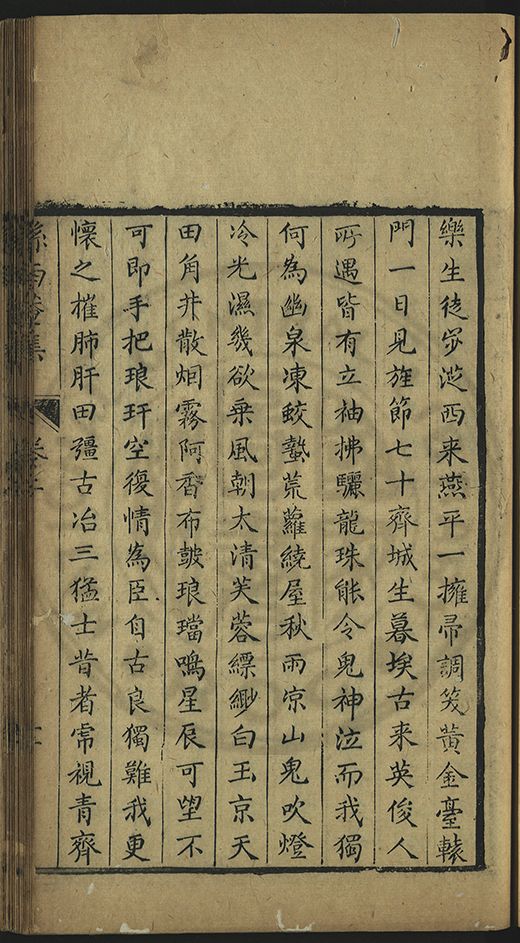 樂生徒步逰西来燕平一擁帚調笑黄金臺轅
門一日見旌節七十齊城生暮埃古来英俊人
㪽遇皆有立袖拂驪龍珠能令鬼神泣而我獨
何為幽泉凍蛟蟄荒蘿繞屋秋雨凉山鬼吹燈
冷光濕幾欲乗風朝太清芙蓉縹緲白玉京天
田角井散烟霧阿香布皷琅璫鳴星辰可望不
可即手把琅玕空復情為臣自古良獨難我更
懷之摧肺肝田彊古冶三猛士昔者虎視青齊
集